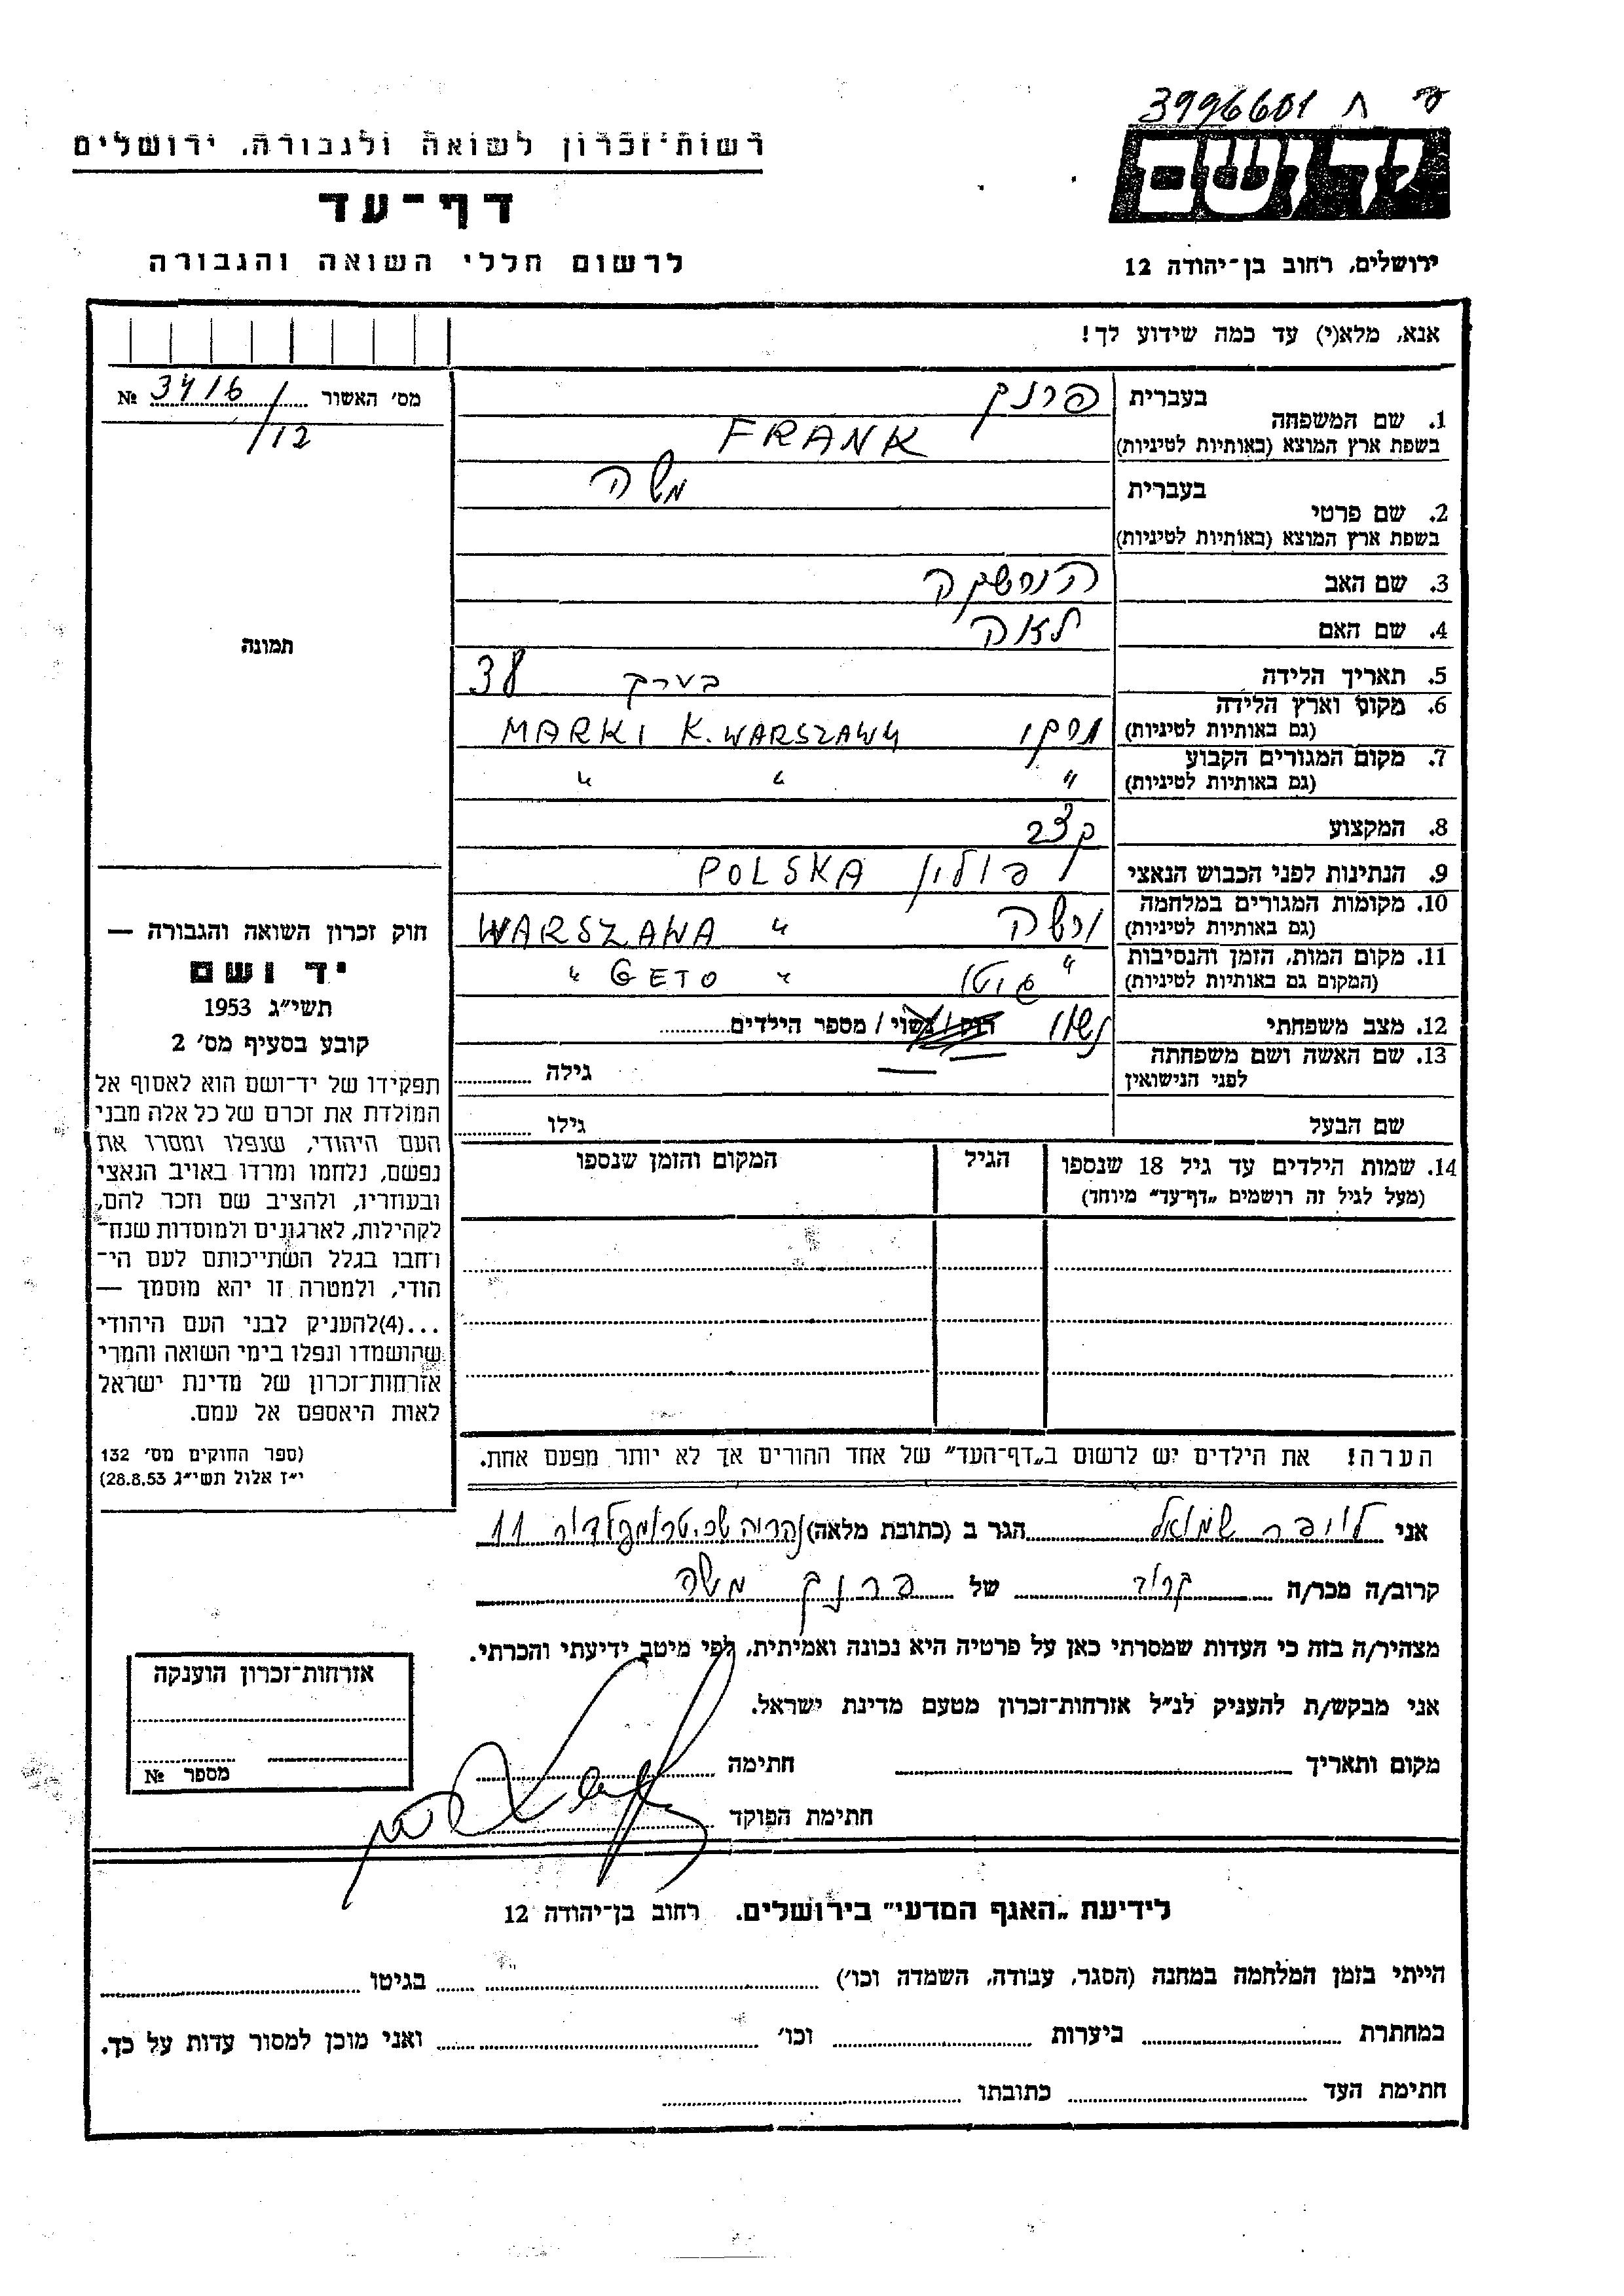 3996601 ח ע
רשות־זכרון לשואה ולגבורה, ירושלים
דף־עד
לרשום חללי השואה והגבורה
יד ושם
ירושלים, רחוב בן־יהודה 12
אנא, מלא(י) עד כמה שידוע לך!
מס׳ האשור № 3416/12
תמונה
1. שם המשפחה בעברית פרנק
בשפת ארץ המוצא (באותיות לטיניות) FRANK
2. שם פרטי בעברית משה
בשפת ארץ המוצא (באותיות לטיניות)
3. שם האב
4. שם האם לאה
5. תאריך הלידה בערך 38
6. מקום וארץ הלידה (גם באותיות לטיניות) מרקי MARKI K. WARSZAWY
7. מקום המגורים הקבוע (גם באותיות לטיניות) " " "
8. המקצוע קצב
9. הנתינות לפני הכבוש הנאצי פולין POLSKA
10. מקומות המגורים במלחמה (גם באותיות לטיניות) ורשה " WARSZAWA
11. מקום המות, הזמן והנסיבות (המקום גם באותיות לטיניות) " גיטו " GETO "
12. מצב משפחתי נשוי רווק / נשוי / מספר הילדים
13. שם האשה ושם משפחתה לפני הנישואין — גילה
שם הבעל גילו
14. שמות הילדים עד גיל 18 שנספו (מעל לגיל זה רושמים „דף־עד״ מיוחד) הגיל המקום והזמן שנספו
הערה! את הילדים יש לרשום ב„דף־העד״ של אחד ההורים אך לא יותר מפעם אחת.
חוק זכרון השואה והגבורה —
יד ושם
תשי״ג 1953
קובע בסעיף מס׳ 2
תפקידו של יד־ושם הוא לאסוף אל
המולדת את זכרם של כל אלה מבני
העם היהודי, שנפלו ומסרו את
נפשם, נלחמו ומרדו באויב הנאצי
ובעוזריו, ולהציב שם וזכר להם,
לקהילות, לארגונים ולמוסדות שנח־
רחבו בגלל השתייכותם לעם הי־
הודי, ולמטרה זו יהא מוסמך —
...(4)להעניק לבני העם היהודי
שהושמדו ונפלו בימי השואה והמרי
אזרחות־זכרון של מדינת ישראל
לאות היאספם אל עמם.
(ספר החוקים מס׳ 132
י״ז אלול תשי״ג 28.8.53)
אני לויפר שמואל הגר ב (כתובת מלאה) נהריה 11
קרוב/ה מכר/ה קרוב של פרנק משה
מצהיר/ה בזה כי העדות שמסרתי כאן על פרטיה היא נכונה ואמיתית, לפי מיטב ידיעתי והכרתי.
אני מבקש/ת להעניק לנ״ל אזרחות־זכרון מטעם מדינת ישראל.
מקום ותאריך חתימה
חתימת הפוקד
אזרחות־זכרון הוענקה
מספר №
לידיעת „האגף המדעי״ בירושלים. רחוב בן־יהודה 12
הייתי בזמן המלחמה במחנה (הסגר, עבודה, השמדה וכו׳) בגיטו
במחתרת ביערות וכו׳ ואני מוכן למסור עדות על כך.
חתימת העד כתובתו